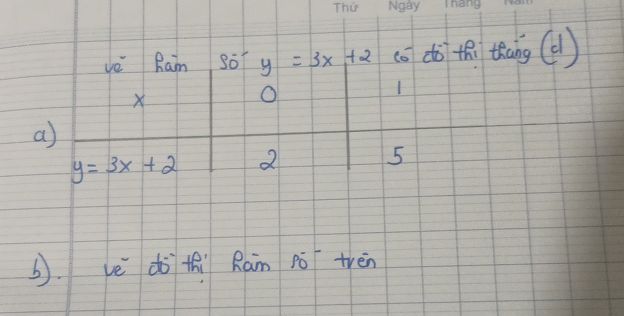 Thứ Ngày Tháng Năm
vẽ hàm số y = 3x + 2 có đồ thị thẳng (d)
x 0 1
a)
y = 3x + 2 2 5
b). vẽ đồ thị hàm số trên